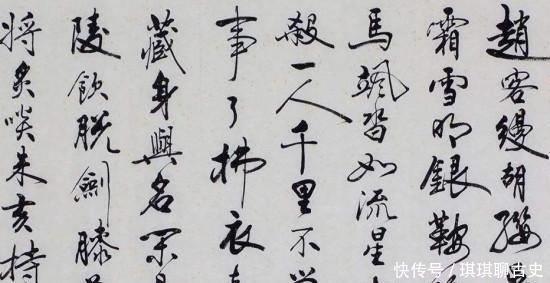 趙客縵胡纓
霜雪明銀鞍
馬颯沓如流星
殺一人千里不
事了拂衣
藏身與名閑
陵飲脫劍膝
將炙啖朱亥持
快传号/琪琪聊古史